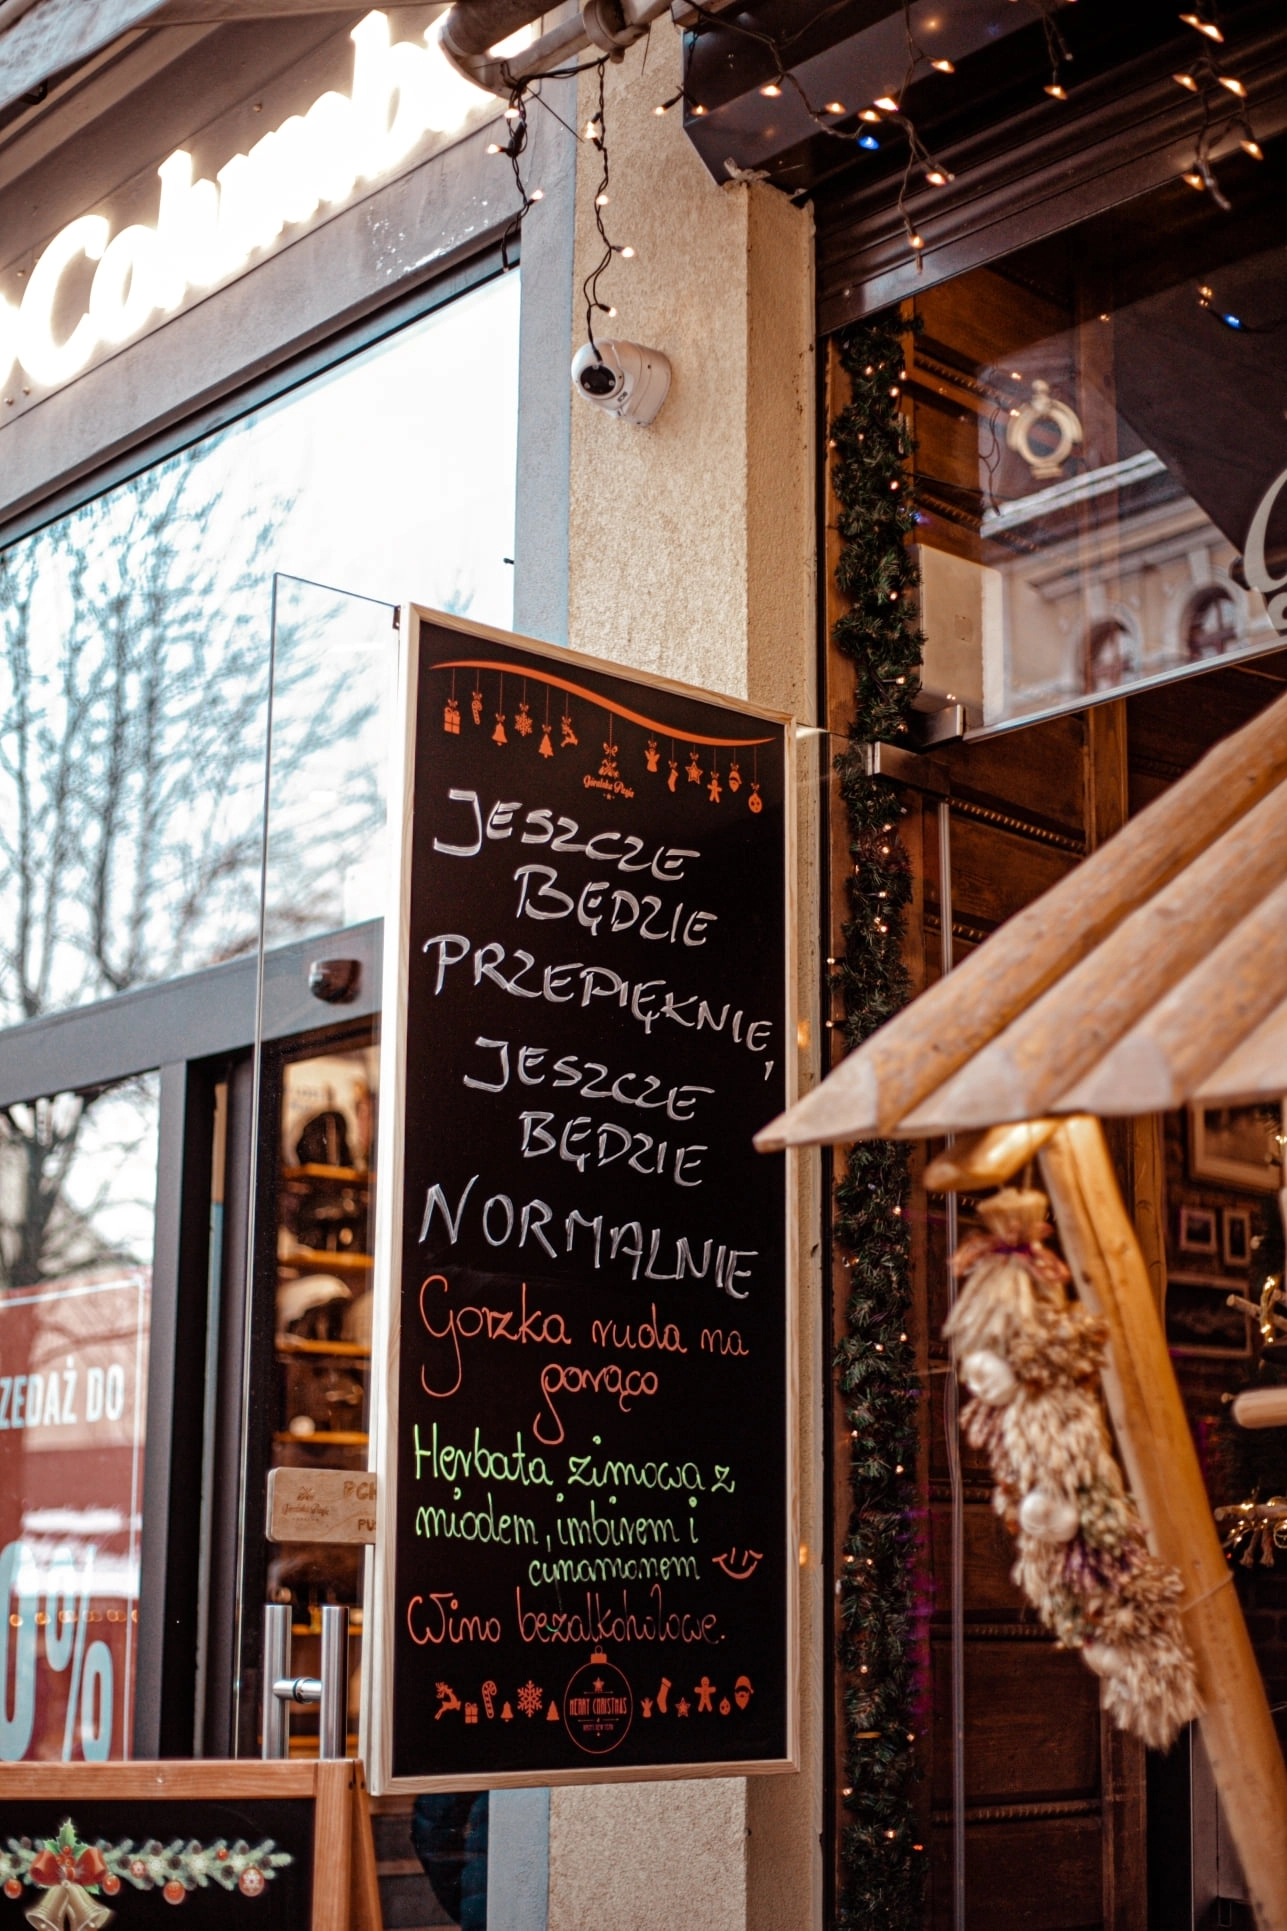 Columb
Góralska Pasja
JESZCZE
BĘDZIE
PRZEPIĘKNIE,
JESZCZE
BĘDZIE
NORMALNIE
Gorzka ruda na
gorąco
Herbata zimowa z
miodem, imbirem i
cynamonem
Wino bezalkoholowe.
MERRY CHRISTMAS
HAPPY NEW YEAR
ZEDAŻ DO
0%